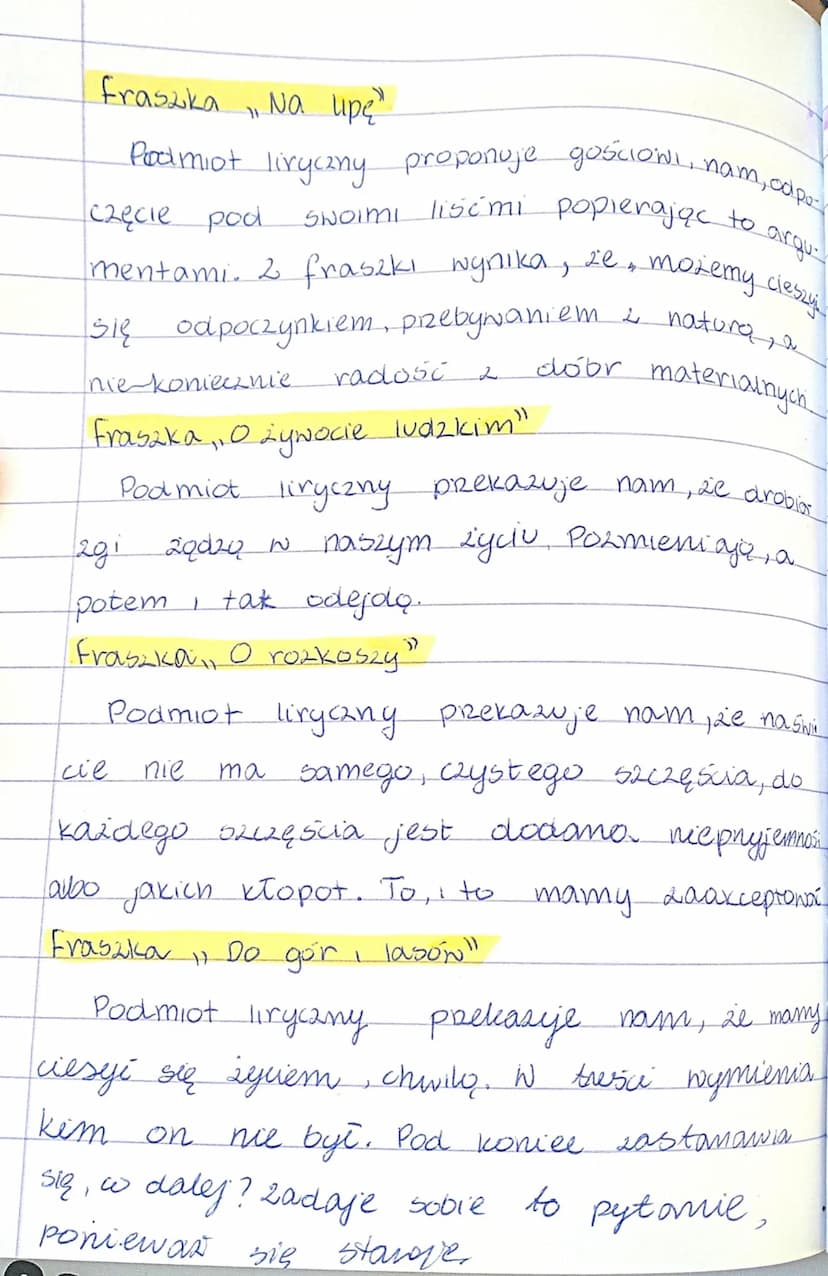 Fraszka „Na lipę”
Podmiot liryczny proponuje gościowi, nam, odpo-
częcie pod swoimi liśćmi popierając to argu-
mentami. Z fraszki wynika, że, możemy cieszyć
się odpoczynkiem, przebywaniem z naturą, a
niekoniecznie radość z dóbr materialnych
Fraszka „O żywocie ludzkim”
Podmiot liryczny przekazuje nam, że drobia
zgi żądzą w naszym życiu. Pozmieniają, a
potem i tak odejdą.
Fraszka „O rozkoszy”
Podmiot liryczny przekazuje nam, że na świ
cie nie ma samego, czystego szczęścia, do
każdego szczęścia jest dodana nieprzyjemność
albo jakich kłopot. To, i to mamy zaakceptować
Fraszka „Do gór i lasów”
Podmiot liryczny przekazuje nam, że mamy
cieszyć się życiem, chwilą. W treści wymienia
kim on nie był. Pod koniec zastanawia
się, co dalej? Zadaje sobie to pytanie,
ponieważ się starzeje.